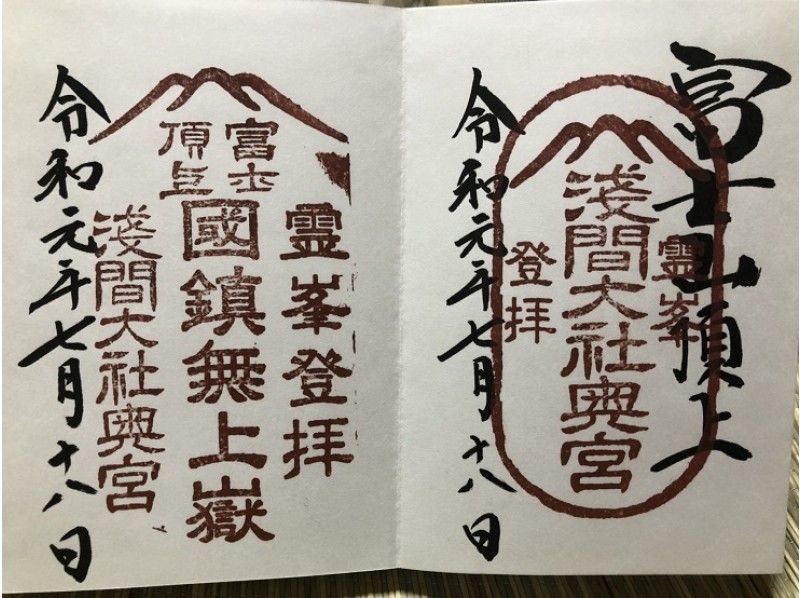 富士山頂上
霊峯
浅間大社奥宮
登拝
令和元年七月十八日
霊峯登拝
富士
頂上
國鎮無上嶽
浅間大社奥宮
令和元年七月十八日